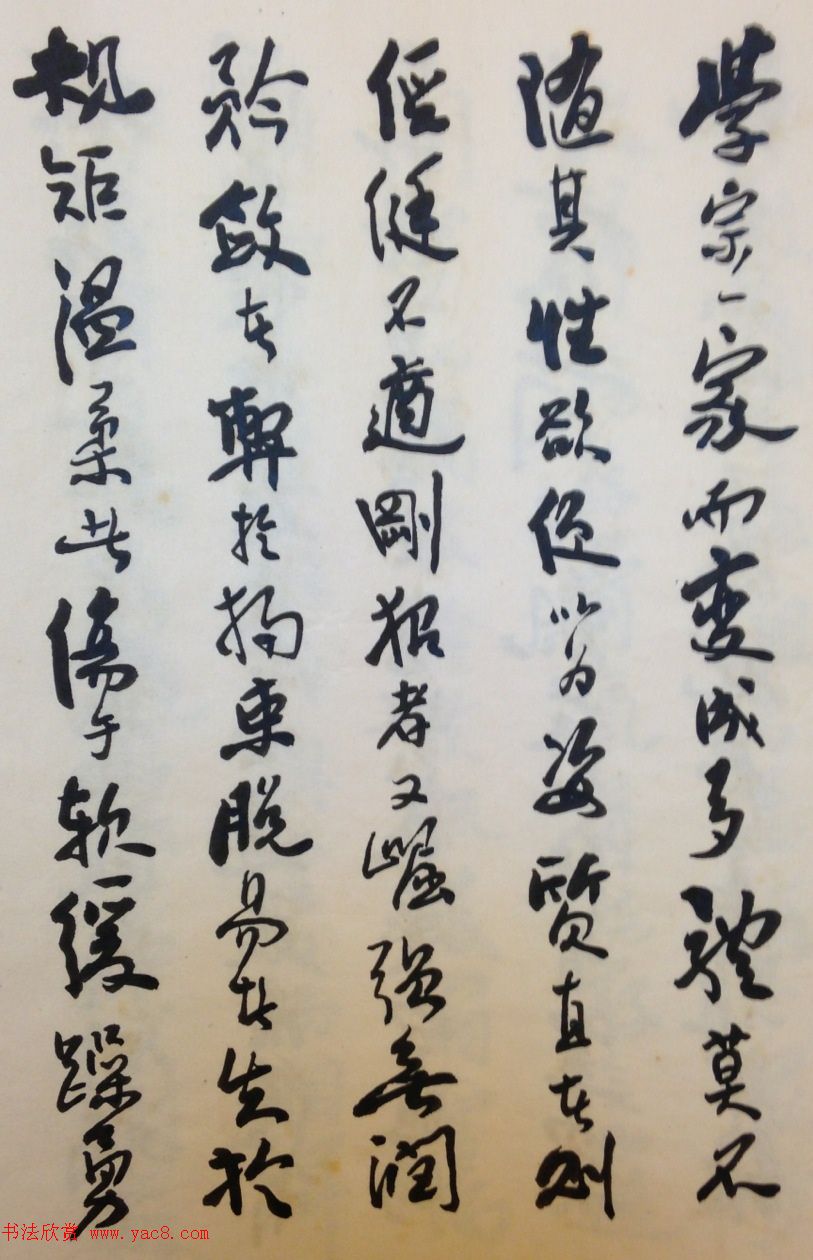 學宗一家而變成多體莫不
随其性欲便以为姿質直者則
俓侹不遒剛狠者又崛强無潤
矜斂者弊於拘束脱易者失於
規矩温柔者傷于軟緩躁勇
书法欣赏 www.yac8.com